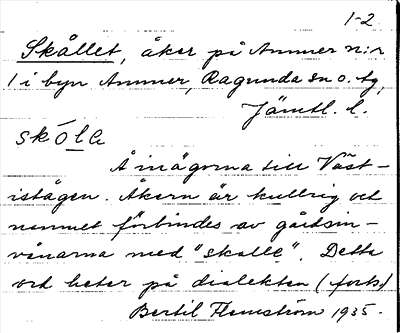 1-2.
Skållet, åker på Ammer n:r
1 i byn Ammer, Ragunda sn o. tg,
Jämtl. l.
skóla
Å inägorna till Väst-
istågen. Åkern är kullrig och
namnet förbindes av gårdsin-
vånarna med "skalle". Detta
ord heter på dialekten (forts)
Bertil Flemström 1935.